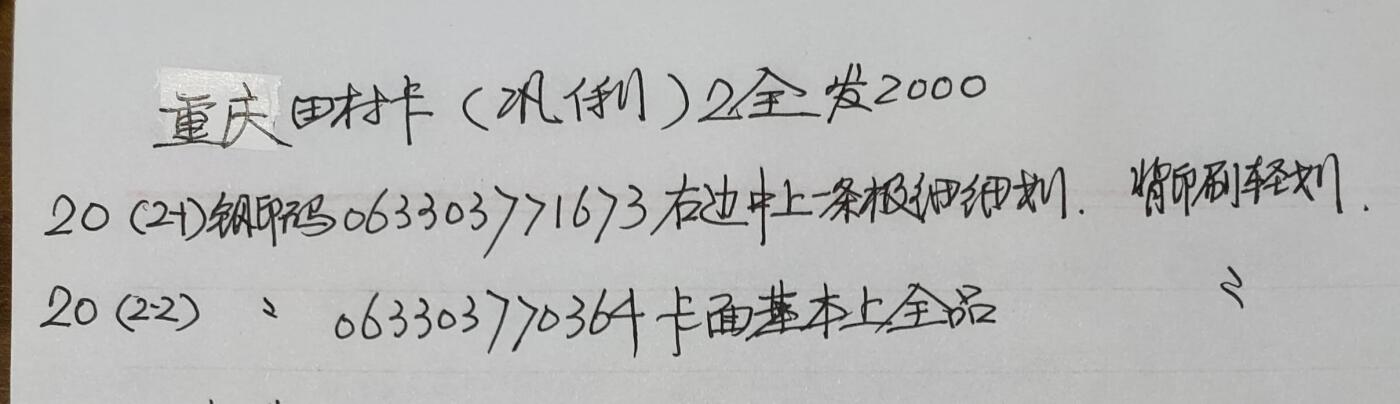 重庆田村卡（巩俐）2全发2000
20（2-1）钢印码063303771673右边中上一条极细细划. 背印刷轻划.
20（2-2） 〃 063303770364卡面基本上全品 〃